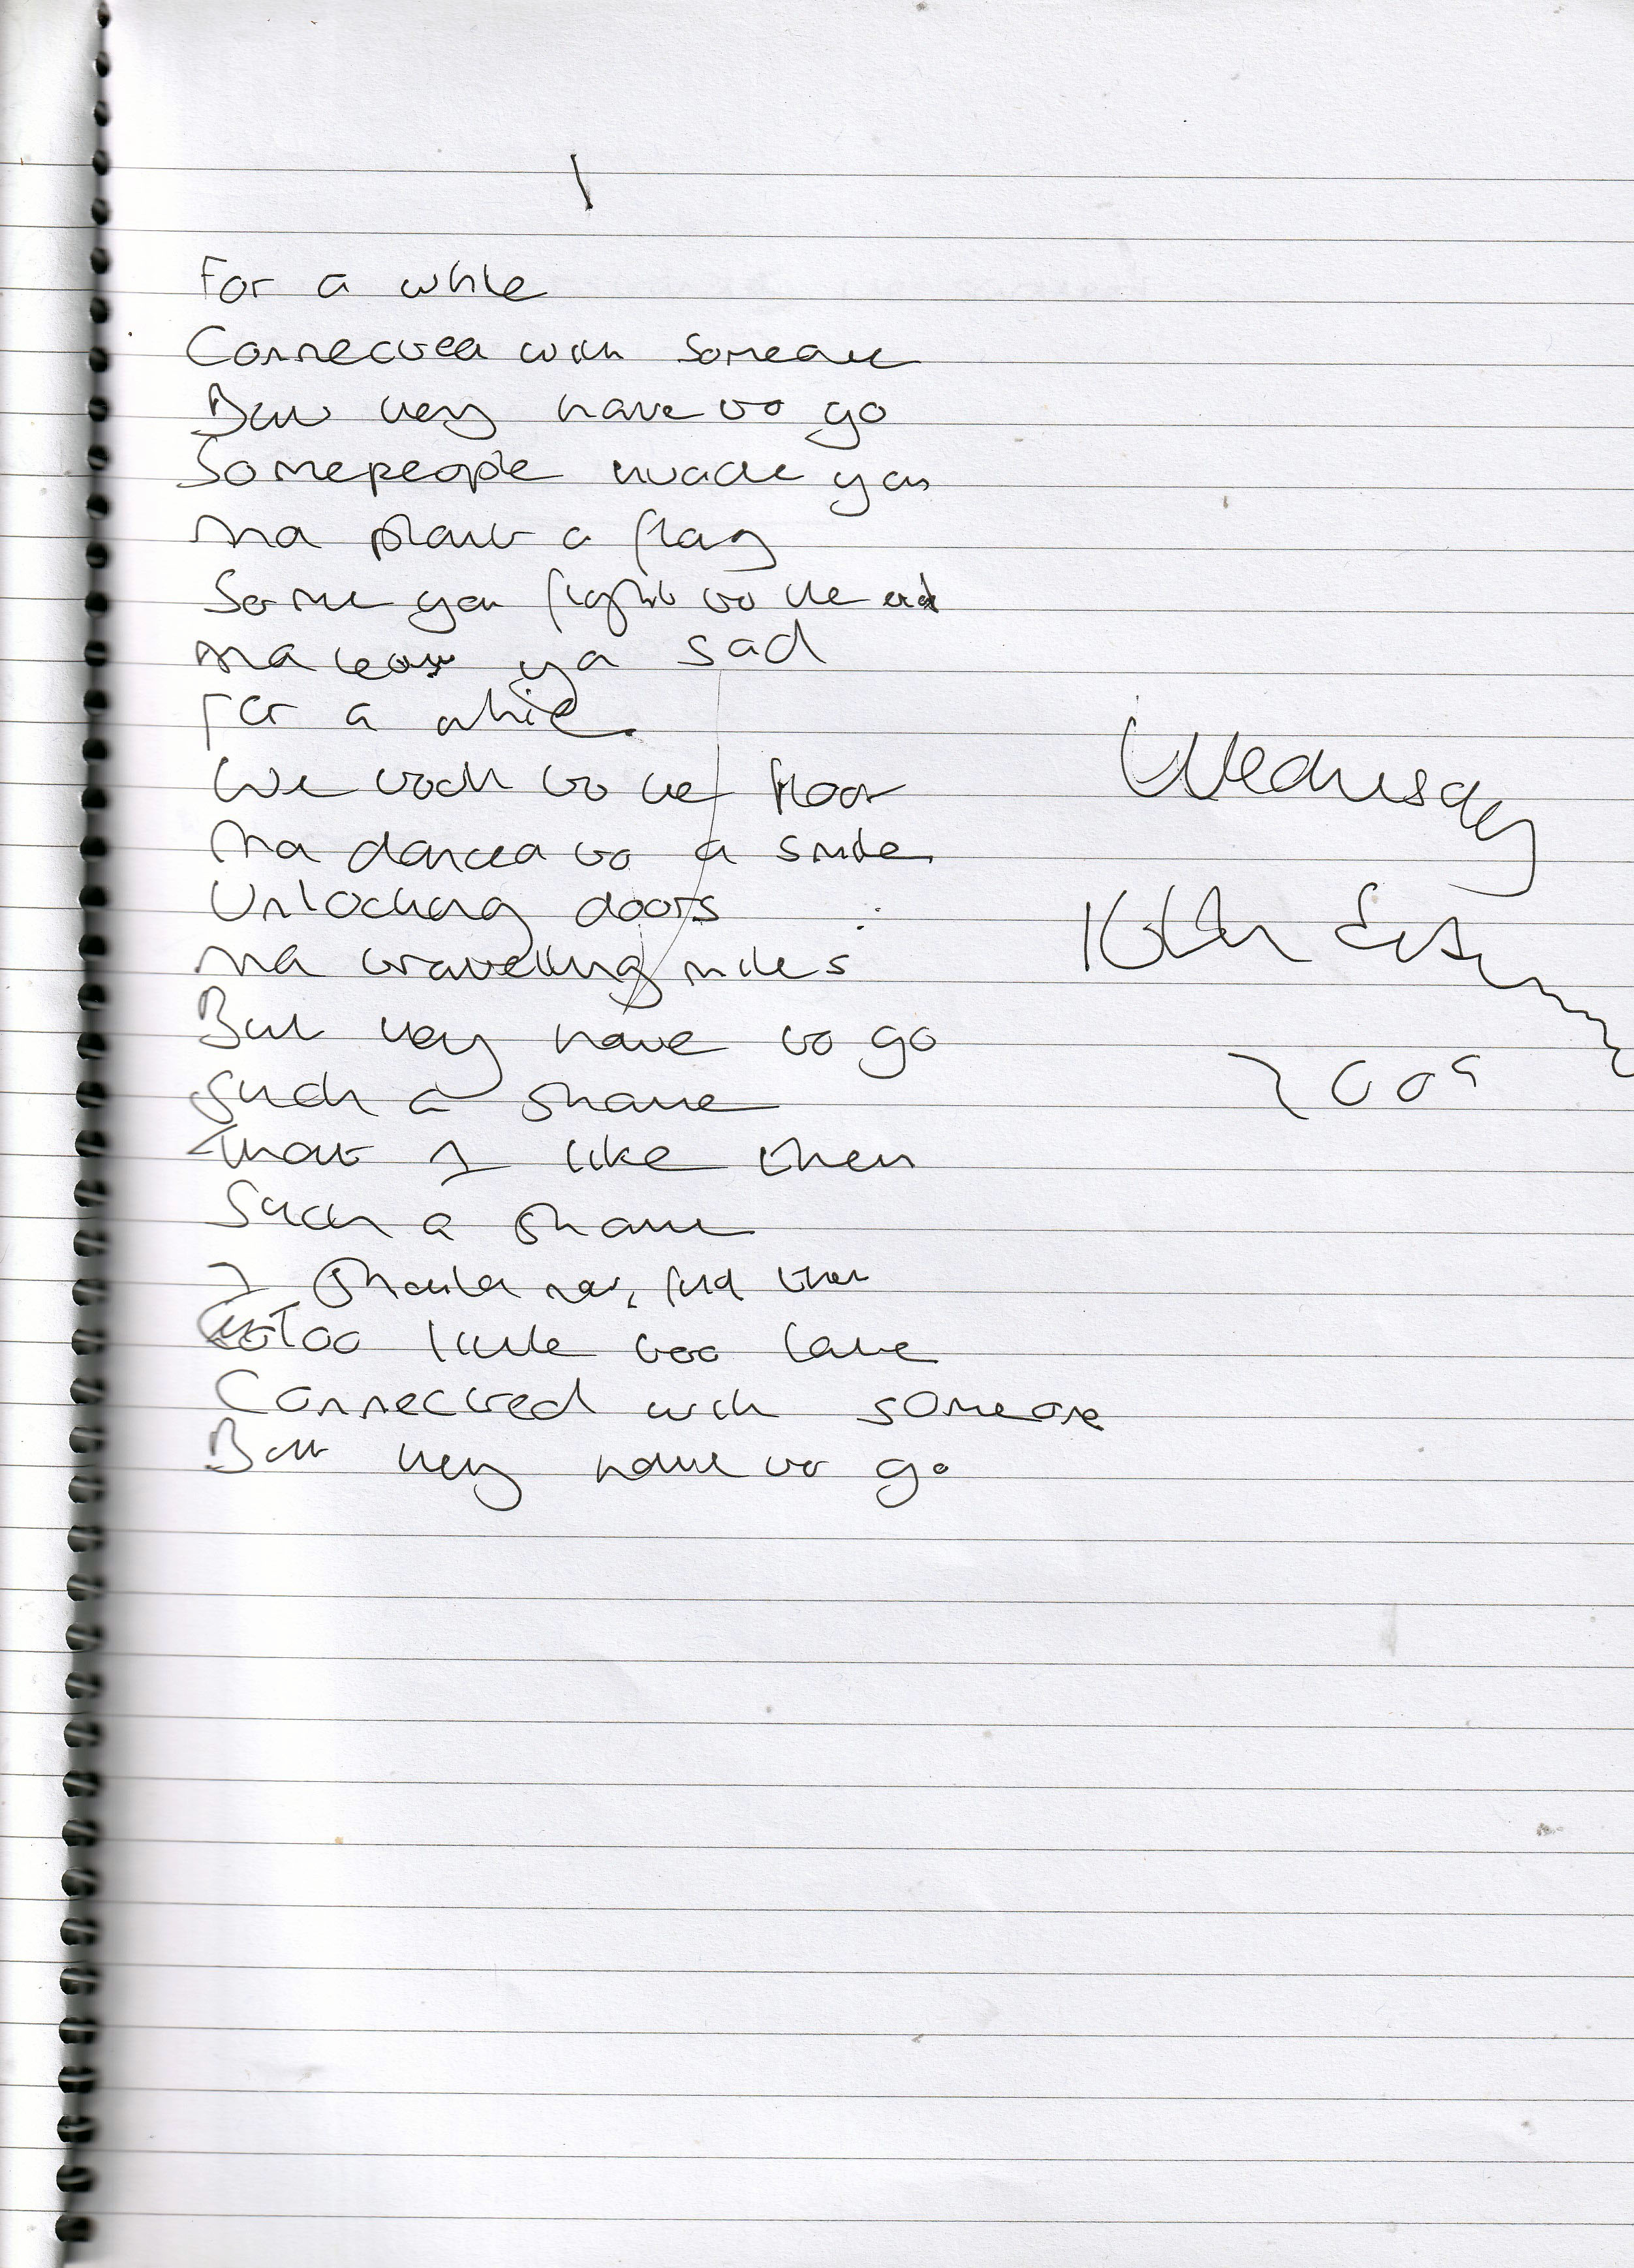 1
For a while
Connected with someone
But they have to go
Some people invade you
And plant a flag
Some you fight to the end
And leave ya sad
For a while.
We took to the floor
And danced to a smile
Unlocking doors
And travelling miles
But they have to go
Such a shame
That I like them
Such a shame
I should not, find them
Too little too late
Connected with someone
But they have to go
Wednesday
2009